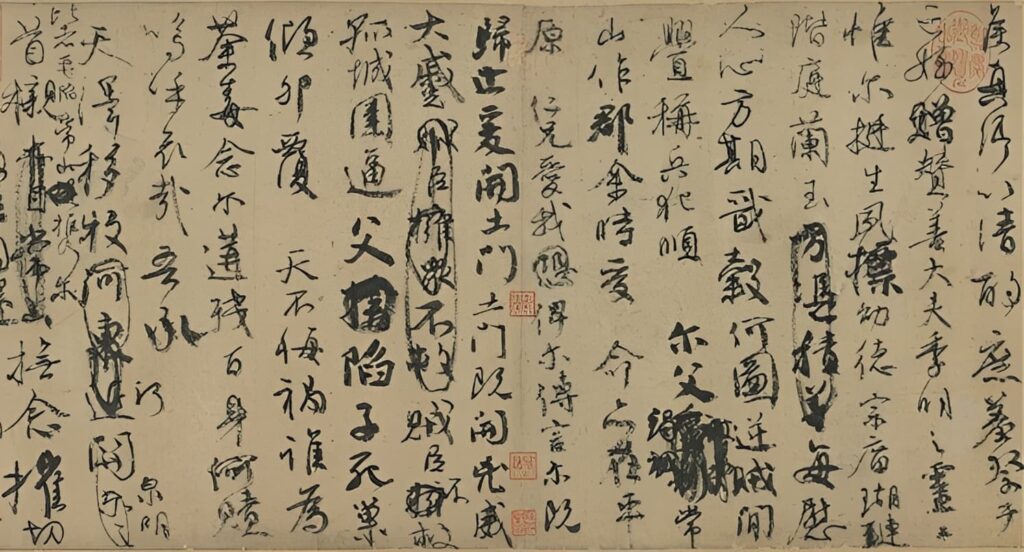 侯真卿以清酌庶羞祭于
亡姪贈贊善大夫季明之靈曰
惟尔挺生夙標幼德宗廟瑚璉
階庭蘭玉方憑積善每慰
人心方期戩穀何圖逆賊閒
釁稱兵犯順 尔父竭誠常
山作郡余時受命亦在平
原 仁兄愛我恐俾尔傳言尔既
歸止爰開土門土門既開兇威
大蹙賊臣擁眾不救賊臣不救
孤城圍逼父擒陷子死巢
傾卵覆 天不悔禍誰為
荼毒念尔遘殘百身何贖
嗚乎哀哉吾承
天澤移牧河東近河關 泉明
比者再陷常山攜尔
首櫬 撫念摧切